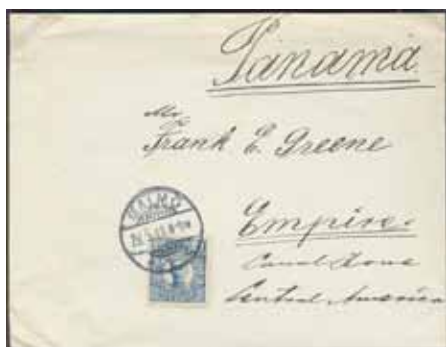 Panama
Mr.
Frank E. Greene
MALMÖ
Empire.
Canal Zone
Central America